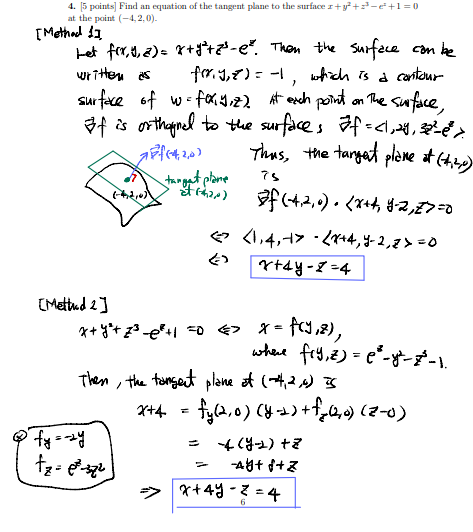 4. [5 points] Find an equation of the tangent plane to the surface x + y² + z³ − eᶻ + 1 = 0
at the point (−4, 2, 0).
[Method 1]
Let f(x,y,z) = x+y²+z³-eᶻ. Then the surface can be
written as f(x,y,z) = -1, which is a contour
surface of w=f(x,y,z). At each point on the surface,
∇f is orthogonal to the surface; ∇f = <1, 2y, 3z²-eᶻ>.
∇f(-4,2,0)
Thus, the tangent plane at (-4,2,0)
is
tangent plane
at (-4,2,0)
(-4,2,0)
∇f(-4,2,0) · <x+4, y-2, z> = 0
⇔ <1,4,-1> · <x+4, y-2, z> = 0
⇔ x+4y-z = 4
[Method 2]
x+y²+z³-eᶻ+1 = 0 ⇔ x = f(y,z),
where f(y,z) = eᶻ-y²-z³-1.
Then, the tangent plane at (-4,2,0) is
x+4 = f_y(2,0) (y-2) + f_z(2,0) (z-0)
f_y = -2y
f_z = eᶻ-3z²
= -4(y-2) + z
= -4y + 8 + z
⇒ x+4y-z = 4
6